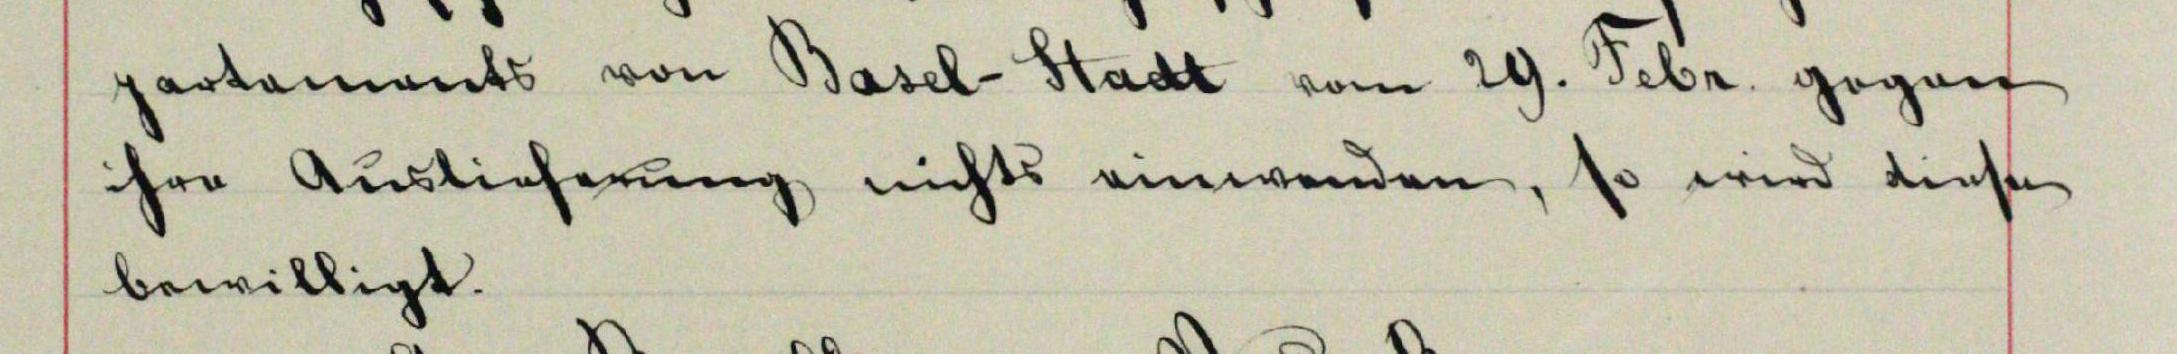 partements von Basel-Stadt vom 29. Febr. gegen
ihre Auslieferung nichts einwenden, so wird diese
bewilligt.